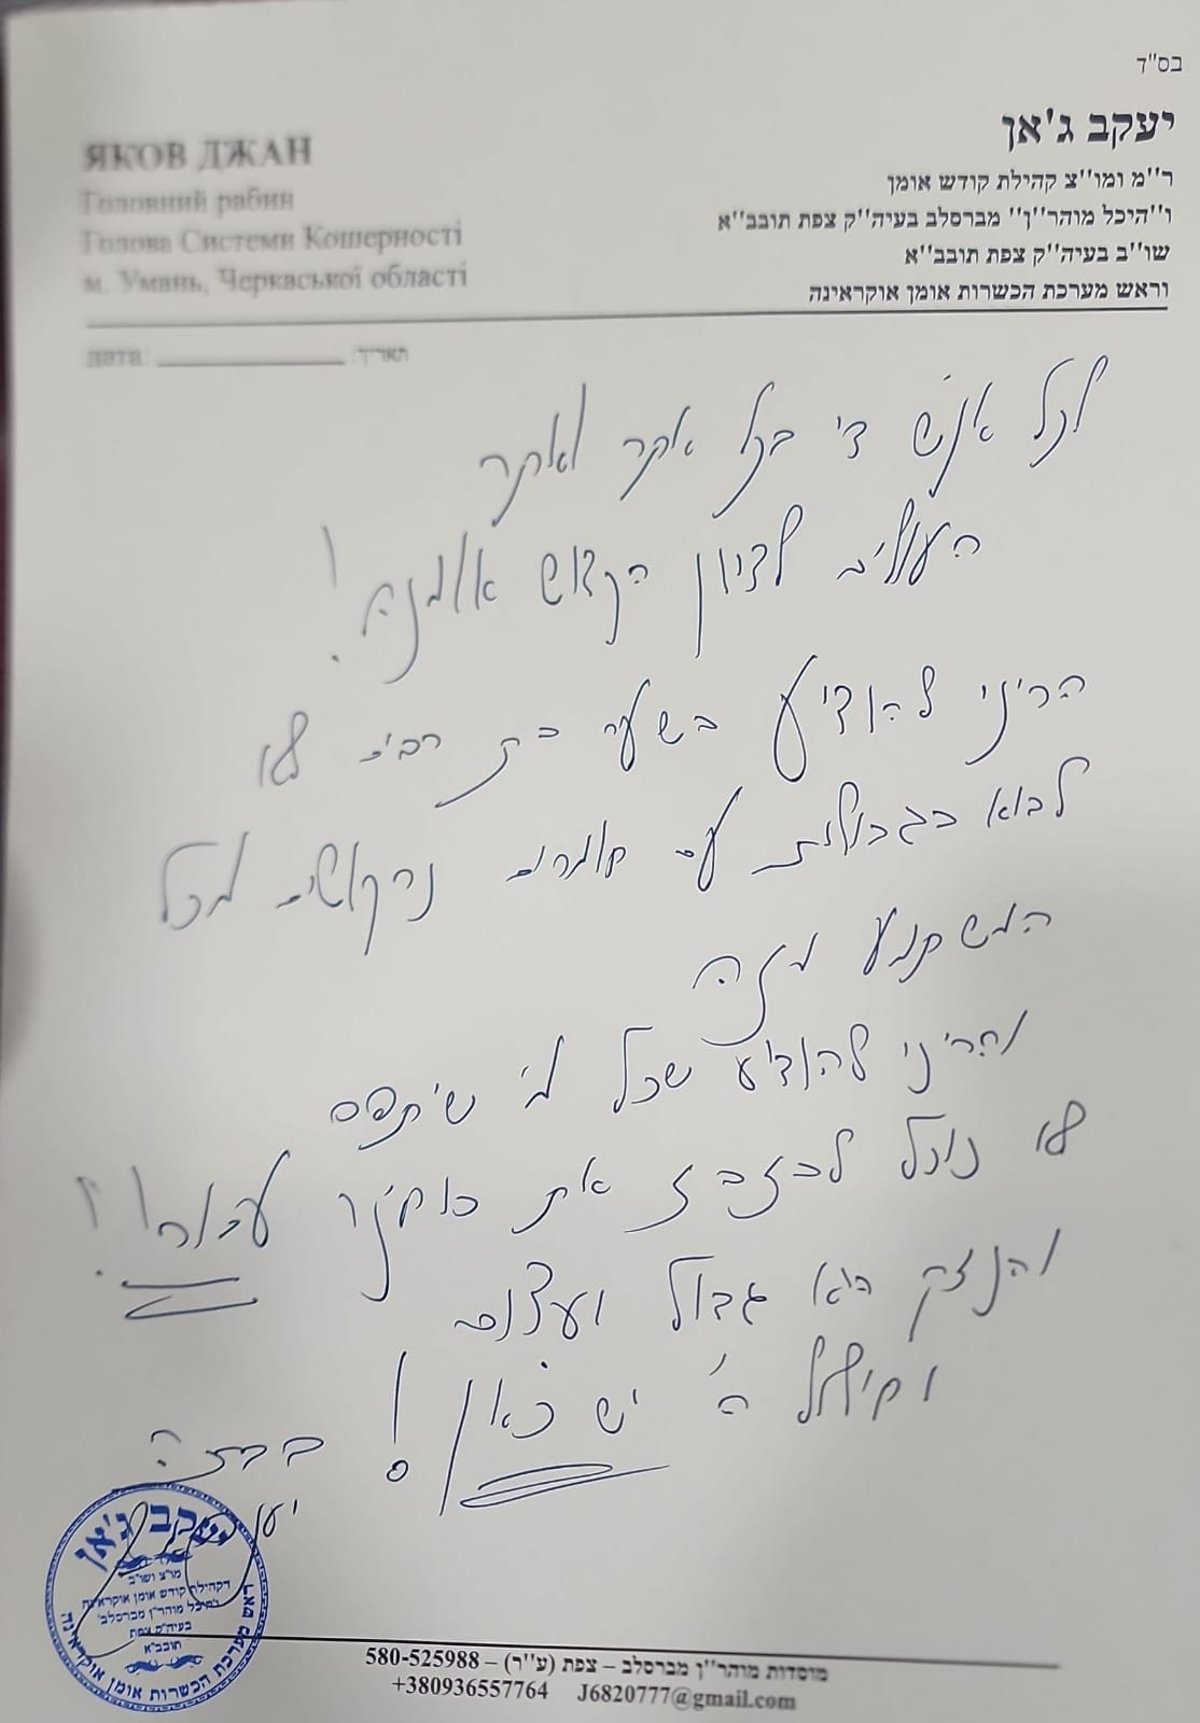 בס"ד
יעקב ג'אן
ר''מ ומו''צ קהילת קודש אומן
ו''היכל מוהר''ן'' מברסלב בעיה''ק צפת תובב''א
שו''ב בעיה''ק צפת תובב''א
וראש מערכת הכשרות אומן אוקראינה
ЯКОВ ДЖАН
Головний рабин
Голова Системи Кошерності
м. Умань, Черкаської області
дата: ____________ תאריך:
לכל אנ"ש די בכל אתר ואתר
העולים לציון הקדוש אומנה!
הריני להודיע בשער בת רבים לא
לבוא בגבולות עם חומרים נרקוטים מכל
המשתמע מזה
והריני להודיע שכל מי שיתפס
לא נוכל לבזבז את כוחינו עבורו!
והנזק הוא גדול ועצום
וחילול ה' יש כאן!
בברכה
יעקב ג'אן
יעקב ג'אן
מו"צ ושו"ב
דקהילת קודש אומן אוקראינה
בעיה"ק צפת
תובב"א
ראש מערכת הכשרות אומן אוקראינה
מוסדות מוהר''ן מברסלב – צפת (ע''ר) – 580-525988
+380936557764 J6820777@gmail.com